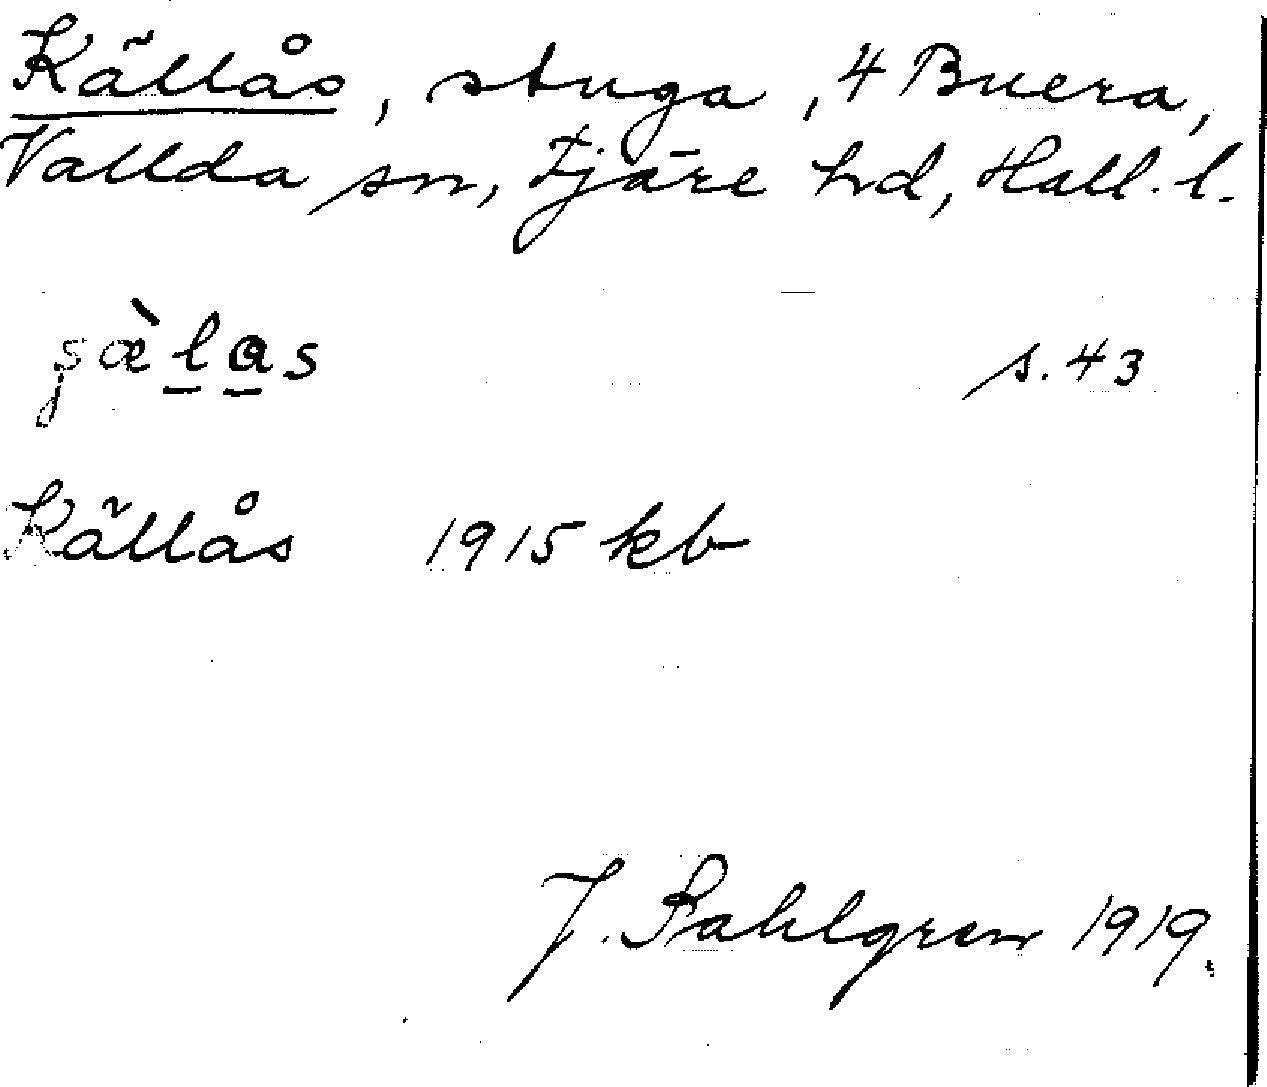 Källås, stuga, 4 Buera,
Vallda sn, Fjäre hd, Hall. l.
s. 43
Källås 1915 kb
J. Sahlgren 1919.